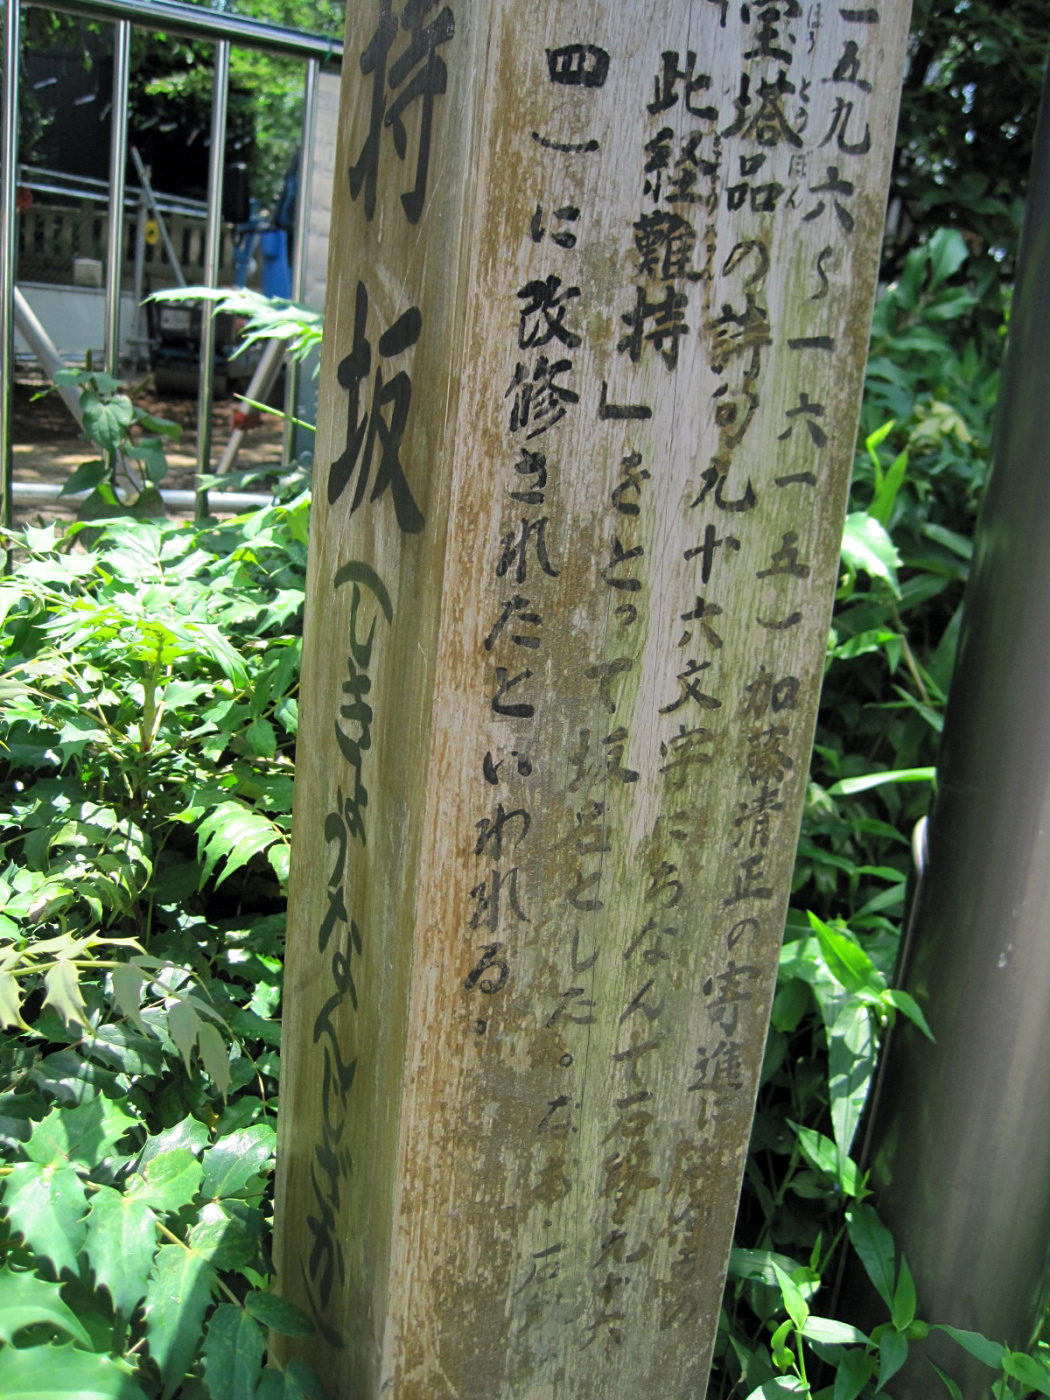 一五九六〜一六一五)加藤清正の寄進に
宝塔品の詩句九十六文字にちなんで石段を九十六
ほうとうほん
此経難持」をとって坂名とした。なお、石段は
四)に改修されたといわれる。
持坂
(しきょうなんじざか)